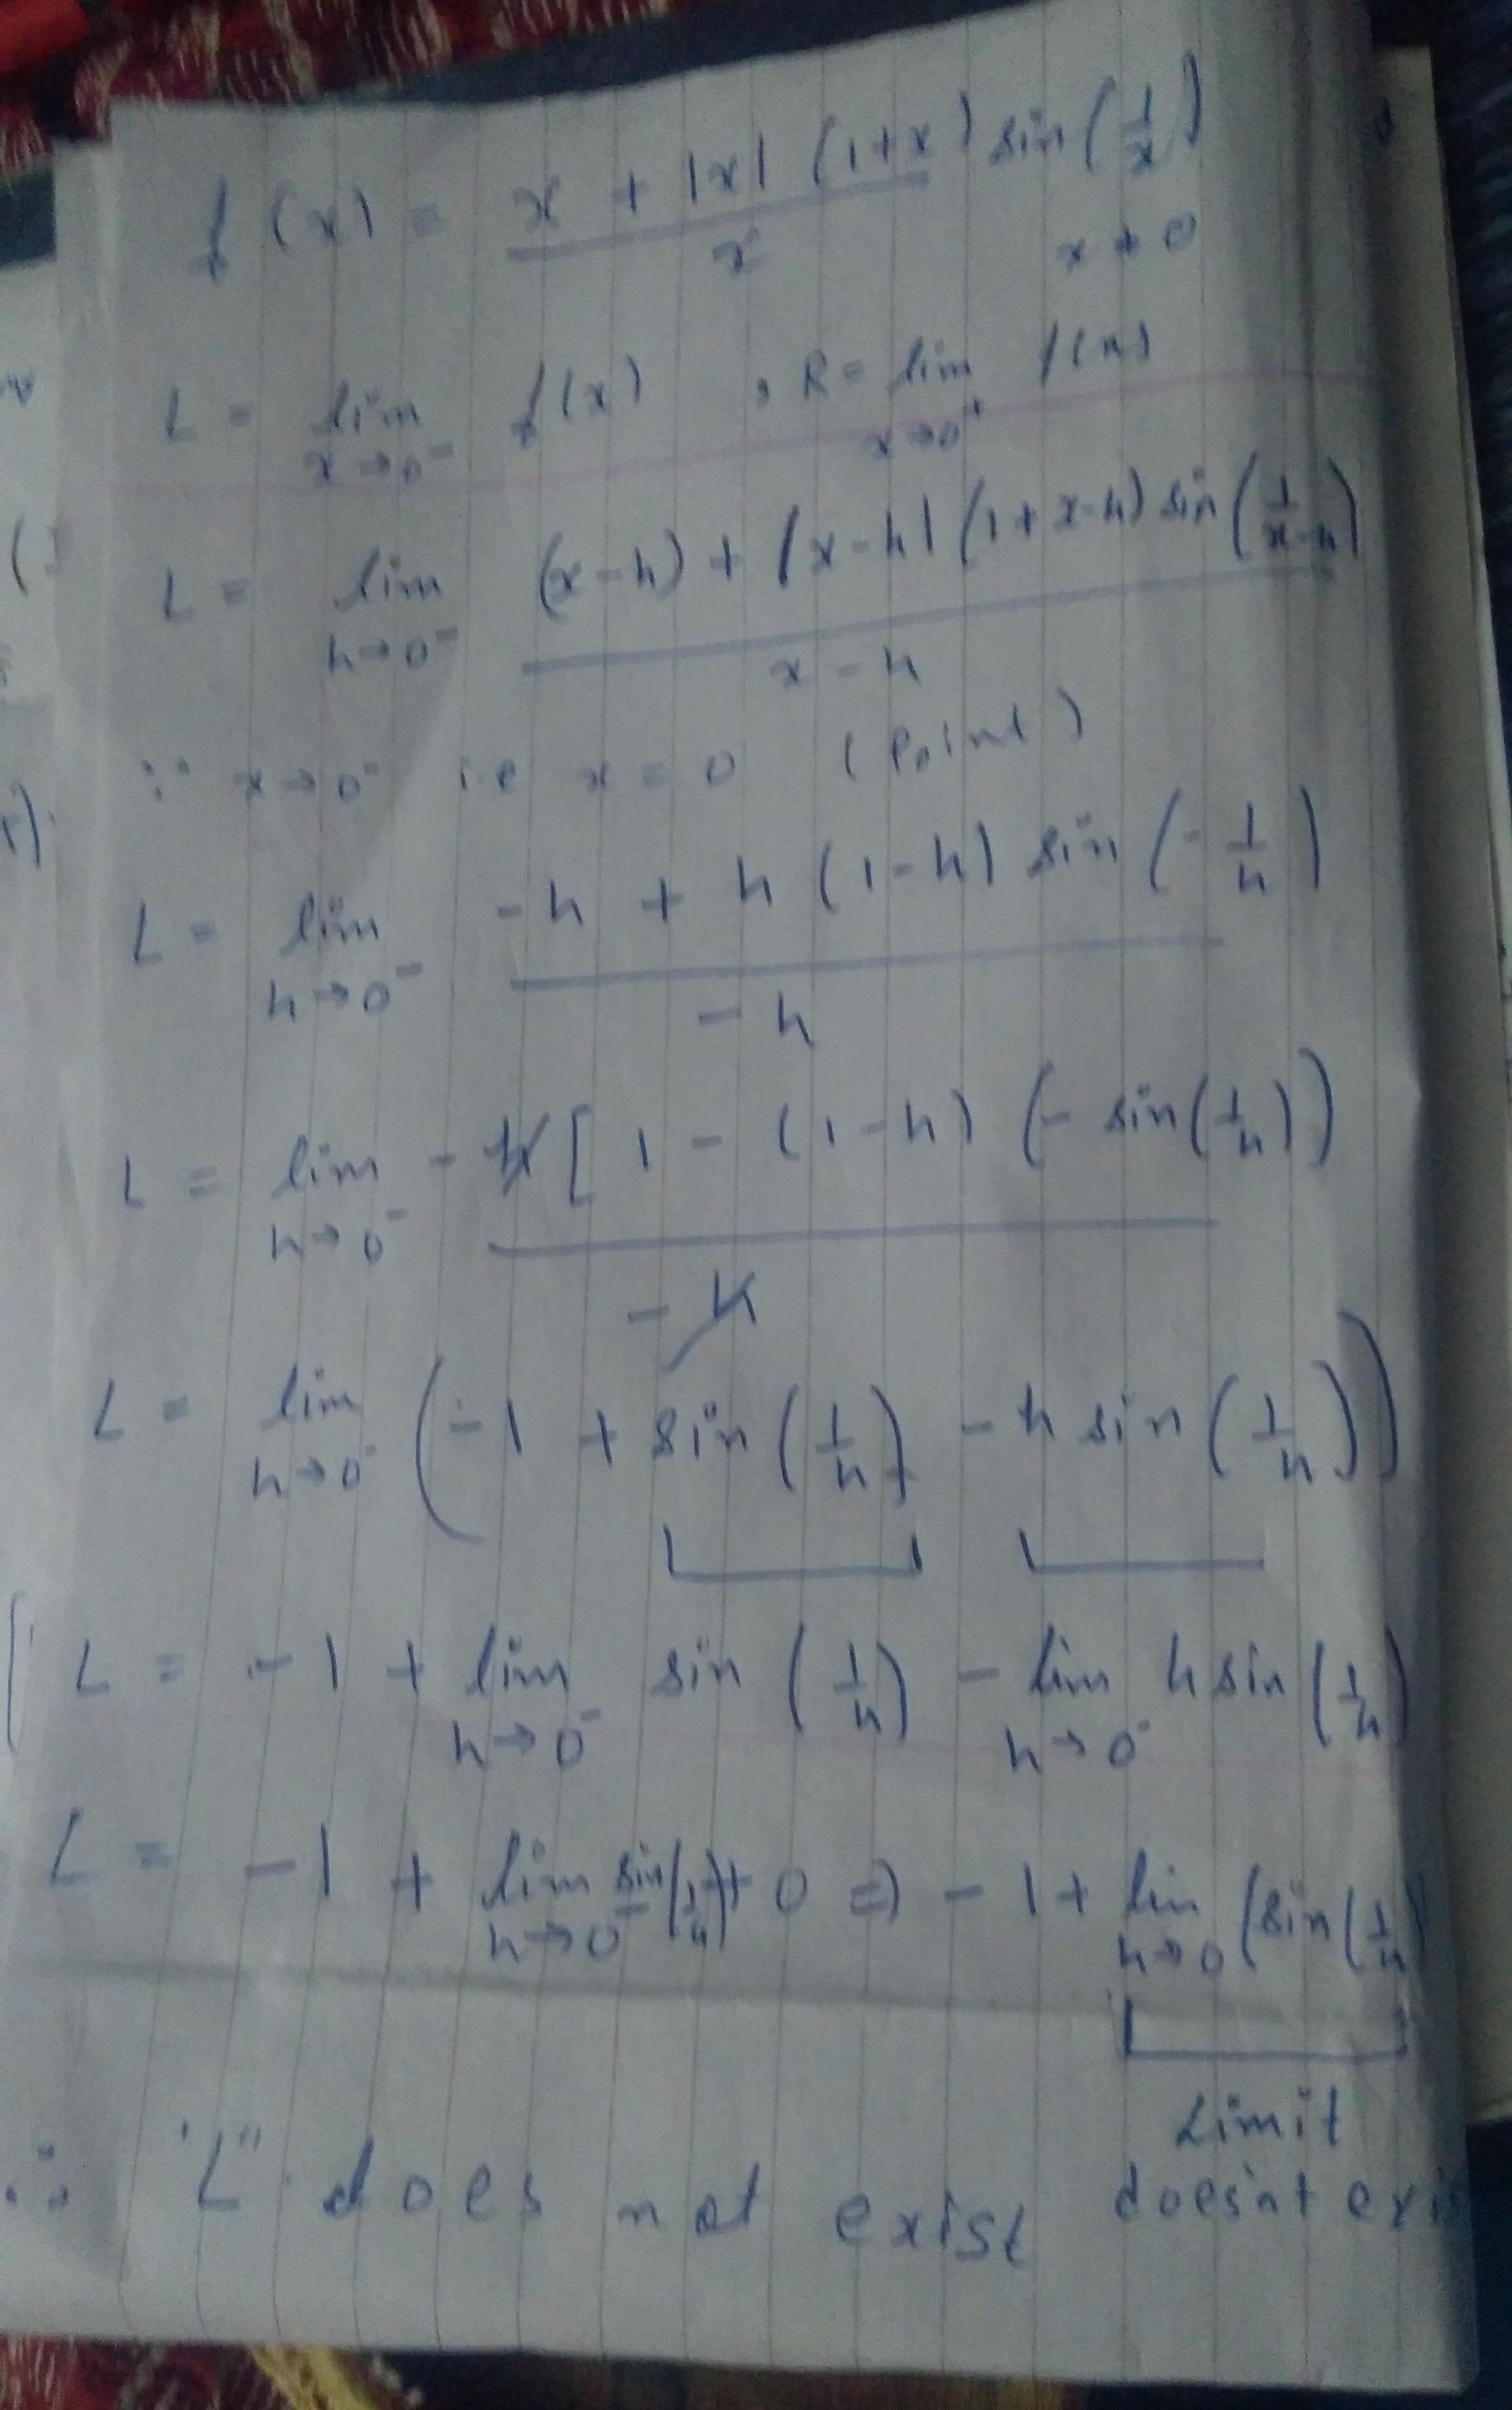 f(x) = x + |x| (1+x) sin(1/x) / x x ≠ 0
L = lim x→0⁻ f(x) , R = lim x→0⁺ f(x)
L = lim h→0⁻ (x-h) + |x-h| (1+x-h) sin(1/x-h) / x-h
∵ x→0⁻ i.e x = 0 (Point)
L = lim h→0⁻ -h + h (1-h) sin(-1/h) / -h
L = lim h→0⁻ -h[1 - (1-h) (- sin(1/h)) / -h
L = lim h→0⁻ (-1 + sin(1/h) - h sin(1/h))
L = -1 + lim h→0⁻ sin(1/h) - lim h→0⁻ h sin(1/h)
L = -1 + lim h→0⁻ sin(1/h) + 0 ⇒ -1 + lim h→0 (sin(1/h)
Limit
∴ "L" does not exist doesn't exi